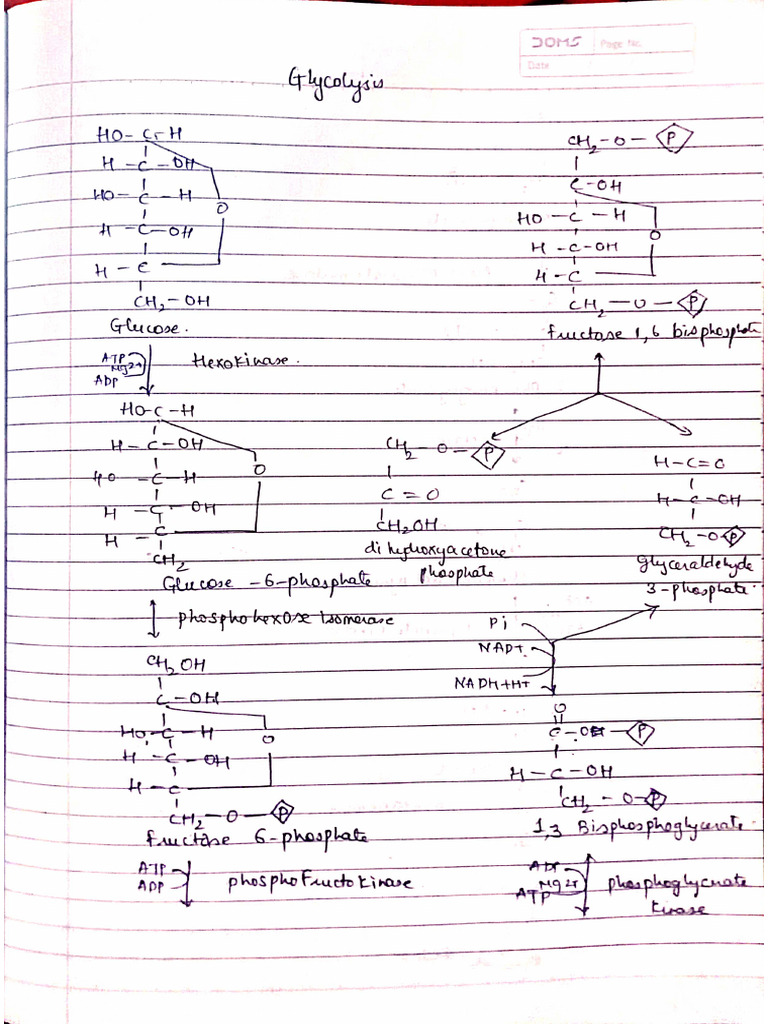 DOMS Page No.
Date
Glycolysis
HO – C – H
H – C – OH
HO – C – H
O
H – C – OH
H – C
CH2 – OH
Glucose.
ATP
Mg2+
ADP
Hexokinase.
HO – C – H
H – C – OH
O
HO – C – H
H – C OH
H – C
CH2
Glucose – 6 – phosphate
phosphohexose Isomerase
CH2 OH
C – OH
HO – C – H
O
H – C – OH
H – C
CH2 – O – P
fructase 6-phosphate
ATP
ADP
phosphofructokinase
CH2 – O – P
C – OH
HO – C – H
O
H – C – OH
H – C
CH2 – O – P
fructase 1,6 bisphosphate
CH2 – O – P
C = O
CH2OH
dihydroxyacetone
phosphate
H – C = O
H – C – OH
CH2 – O P
glyceraldehyde
3 – phosphate.
Pi
NAD+
NADH+H+
O
C – O – P
H – C – OH
CH2 – O – P
1,3 Bisphosphoglycerate
ADP
Mg2+
ATP
phosphoglycerate
kinase